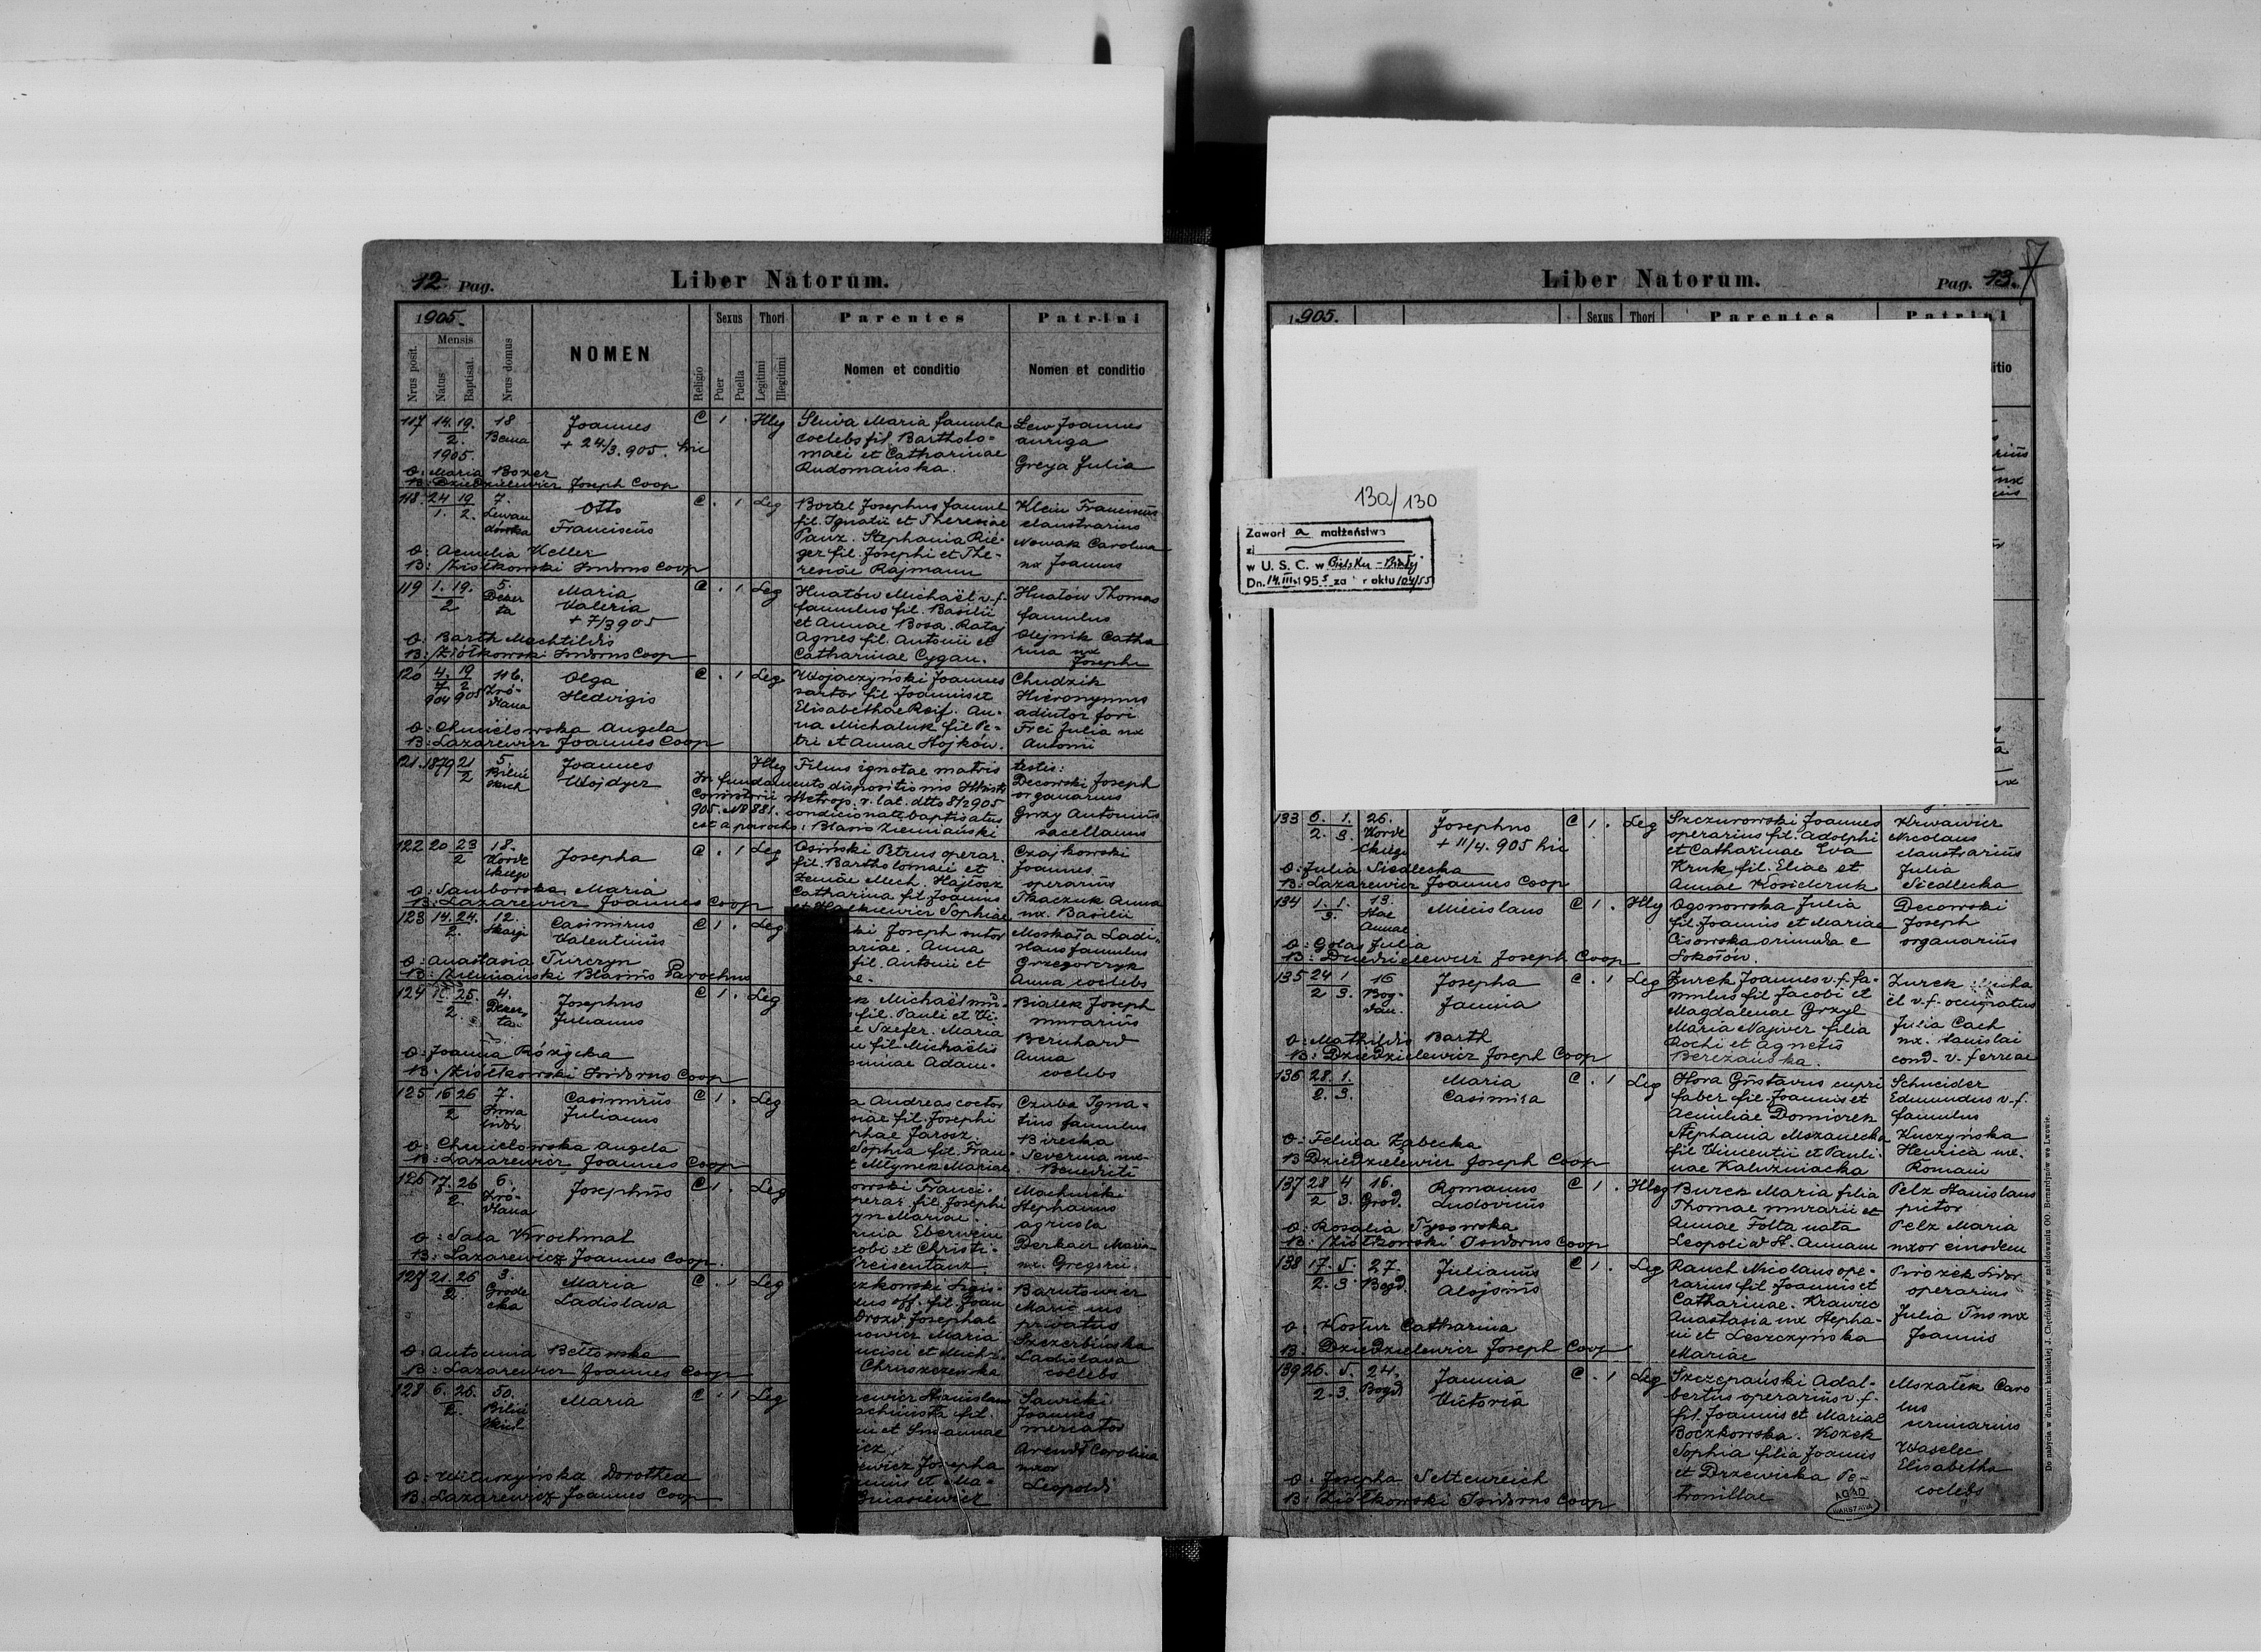 12 Pag.
Liber Natorum.
1905.
Nrus posit.
Mensis
Natus
Baptisat.
Nrus domus
NOMEN
Religio
Sexus
Puer
Puella
Thori
Legitimi
Illegitimi
Parentes
Nomen et conditio
Patrini
Nomen et conditio
117 14. 19.
2.
1905.
18
Bema
Joannes
+ 24/3. 905. hic
C 1 . Illeg
Sliwa Maria famula
coelebs fil. Bartholo-
maei et Catharinae
Rudomańska.
Lew Joannes
auriga
Greya Julia
O: Maria Boxer
B: Dziedzielewicz Joseph Coop
118. 24 19
1. 2.
7.
Lewan
dówka
Otto
Franciscus
C . 1 Leg
Bartel Josephus famul
fil. Ignatii et Theresiae
Panz. Stephania Rie-
ger fil. Josephi et The-
resiae Rajmann
Klein Franciscus
claustrarius
Nowak Carolina
ux Joannis
O: Aemilia Keller
B: Ziółkowski Isidorus Coop
119 1. 19.
2
5.
Dezer
ta
Maria
Valeria
+ 7/3 905
C . 1 Leg
Hnatów Michaël v. f.
famulus fil. Basilii
et Annae Bosa. Rataj
Agnes fil. Antonii et
Catharinae Cygan.
Hnatów Thomas
famulus
Olejnik Catha
rina ux
Josephi
O: Barth Machtildis
B: Ziółkowski Isidorus Coop
120 4. 19
7. 2
904 905
116.
Zró-
dlana
Olga
Hedvigis
C . 1 Leg
Wojaczyński Joannes
sartor fil Joannis et
Elisabethae Reif. An-
na Michaluk fil Pe-
tri et Annae Hojków.
Chudzik
Hieronymus
adiutor fori
Frei Julia ux
Antonii
O: Chmielowska Angela
B: Lazarewicz Joannes Coop
121. 1879 21
2
5.
Bilin
skich
Joannes
Wojdyer
Illeg Filius ignotae matris
In fundamento dispositionis Illustr.
Consistorii Metrop. r. lat. dtto 8/2 905
905. № 881. condicionate baptisatus
est a parocho: Blasio Ziemiański
testis:
Decowski Joseph
organarius
Gnzy Antonius
sacellanus
122 20 23
2
18.
Korde
ckiego
Josepha
C . 1 Leg
Osiński Petrus operar.
fil. Bartholomaei et
Catharina fil Joannis
et Halkiewicz Sophiae
Czajkowski
Joannes
operarius
Tkaczuk Anna
ux. Basilii
O: Samborska Maria
B: Lazarewicz Joannes Coop
123 14. 24.
2.
12.
Skarga
Casimirus
Valentinus
C 1 . Leg
ki Joseph sutor
ariae. Anna
fil. Antonii et
e.
Moskała Ladi-
slaus famulus
Grzegorczyk
Anna coelebs
O: Anastasia Turczyn
B: Ziemiański Blasius Parochus
124 25.
2.
4.
Dezer
ta
Josephus
Julianus
C 1 . Leg
k Michaël mu-
fil. Pauli et Vi-
Szefer. Maria
u fil Michaëlis
iniae Adam-
Bialek Joseph
murarius
Bernhard
Anna
coelebs
O: Joanna Różycka
B: Ziółkowski Isidorus Coop
125 16 26
2
7.
Casimirus
Julianus
C 1 . Leg
a Andreas coctor
siae fil. Josephi
phae Jarosz.
Sophia fil. Fran-
t Młynek Mariae
Czuba Igna-
tius famulus
Birecka
Severina ux
Benedicti
O: Chmielowska Angela
B: Lazarewicz Joannes Coop
126 17. 26
2.
6.
Zró-
dlana
Josephus
C 1 . Leg
owski Franci-
perar. fil. Josephi
yn Mariae.
rina Eberwein
cobi et Christi-
Preisentanz.
Machnicki
Stephanus
agricola
Derkacz Maria
ux. Gregorii.
O: Sala Krochmal
B: Lazarewicz Joannes Coop.
127 21. 26
2.
3.
Grode
cka
Maria
Ladislava
C . 1 Leg
zkowski Sigis-
dus off. fil. Joan
Drozd Josephae
nowicz Maria
ncisci et Mich
Chruszczewska
Barutowicz
Mari nus
privatus
Szczerbińska
Ladislava
coelebs
O: Antonina Bełtowska
B: Lazarewicz Joannes Coop
128 6. 26.
2.
50.
Bilin
skich
Maria
C . 1 Leg
ewicz Stanislaus
achińska fil.
ni et Susannae
icz.
ewicz Josepha
nnis et Ma-
Gniasiewicz
Sawicki
Joannes
mercator
Arendt Carolina
uxor
Leopoldi
O: Wituszyńska Dorothea
B: Lazarewicz Joannes Coop
Liber Natorum.
Pag. 13.
7
1905.
Sexus
Thori
Parentes
Patrini
itio
130/130
Zawarł a małżeństwo
zi
w U. S. C. w Bielsku-Białej
Dn. 14.III.1955 za nr aktu 104/55
133 6. 1.
2. 3.
26.
Korde
ckiego
Josephus
+ 11/4. 905 hic
C 1 . Leg
Szczurowski Joannes
operarius fil. Adolphi
et Catharinae Eva
Kruk fil. Eliae et
Annae Kosiekruk
Krwawicz
Nicolaus
claustrarius
Julia
Siedlecka
O: Julia Siedlecka
B: Lazarewicz Joannes Coop
134 1. 1.
3.
13.
Stae
Annae
Miecislaus
C 1 . Illeg
Ogonowska Julia
fil. Joannis et Mariae
Cisowska oriunda e
Sokołów.
Decowski
Joseph
organarius
O: Golas Julia
B: Dziedzielewicz Joseph Coop
135 24 1
2 3.
16
Bog-
dan.
Josepha
Janina
C . 1 Leg
Żurek Joannes v. f. fa-
mulus fil Jacobi et
Magdalenae Grzyl
Maria Najwer filia
Rochi et Agnetis
Bereżańska.
Żurek Micha
ël v. f. occupatus
Julia Cach
ux. Stanislai
cond. v. ferreae
O: Mathildis Barth
B: Dziedzielewicz Joseph Coop
136 28. 1.
2. 3.
Maria
Casimira
C . 1 Leg
Hora Gustavus cupri
faber fil. Joannis et
Aemiliae Domiczek
Stephania Mszanecka
fil Vincentii et Pauli-
nae Kaluźniacka
Schneider
Edmundus v. f.
famulus
Kuczyńska
Henrica ux.
Romani
O: Felicia Ząbecka
B Dziedzielewicz Joseph Coop
137 28 4
2 3.
16.
Grod.
Romanus
Ludovicus
C 1 . Illeg
Burek Maria filia
Thomae murarii et
Annae Folta nata
Leopoli ad St. Annam
Pelz Stanislaus
pictor
Pelz Maria
uxor eiusdem
O: Rosalia Tysowska
B: Ziółkowski Isidorus Coop
138 17. 5.
2. 3
27.
Bogd.
Julianus
Alojsius
C 1 . Leg
Rauch Nicolaus ope-
rarius fil Joannis et
Catharinae. Krawiec
Anastasia ux Stepha-
ni et Leszczyńska
Mariae
Pirożek Isidor
operarius
Julia Tus ux
Joannis
O: Kostur Catharina
B: Dziedzielewicz Joseph Coop
139 26. 5.
2. 3.
24.
Bogd
Janina
Victoria
C . 1 Leg
Szczepański Adal-
bertus operarius v. f.
fil. Joannis et Mariae
Boczkowska. Kozek
Sophia filia Joannis
et Drzewicka Pe-
tronillae
Mszałek Caro
lus
Waselec
Elisabetha
coelebs
O. Josepha Seltenreich
B: Ziółkowski Isidorus Coop
AGAD
WARSZAWA
Do nabycia w drukarni katolickiej J. Chęcińskiego w zabudowaniu OO. Bernardynów we Lwowie.